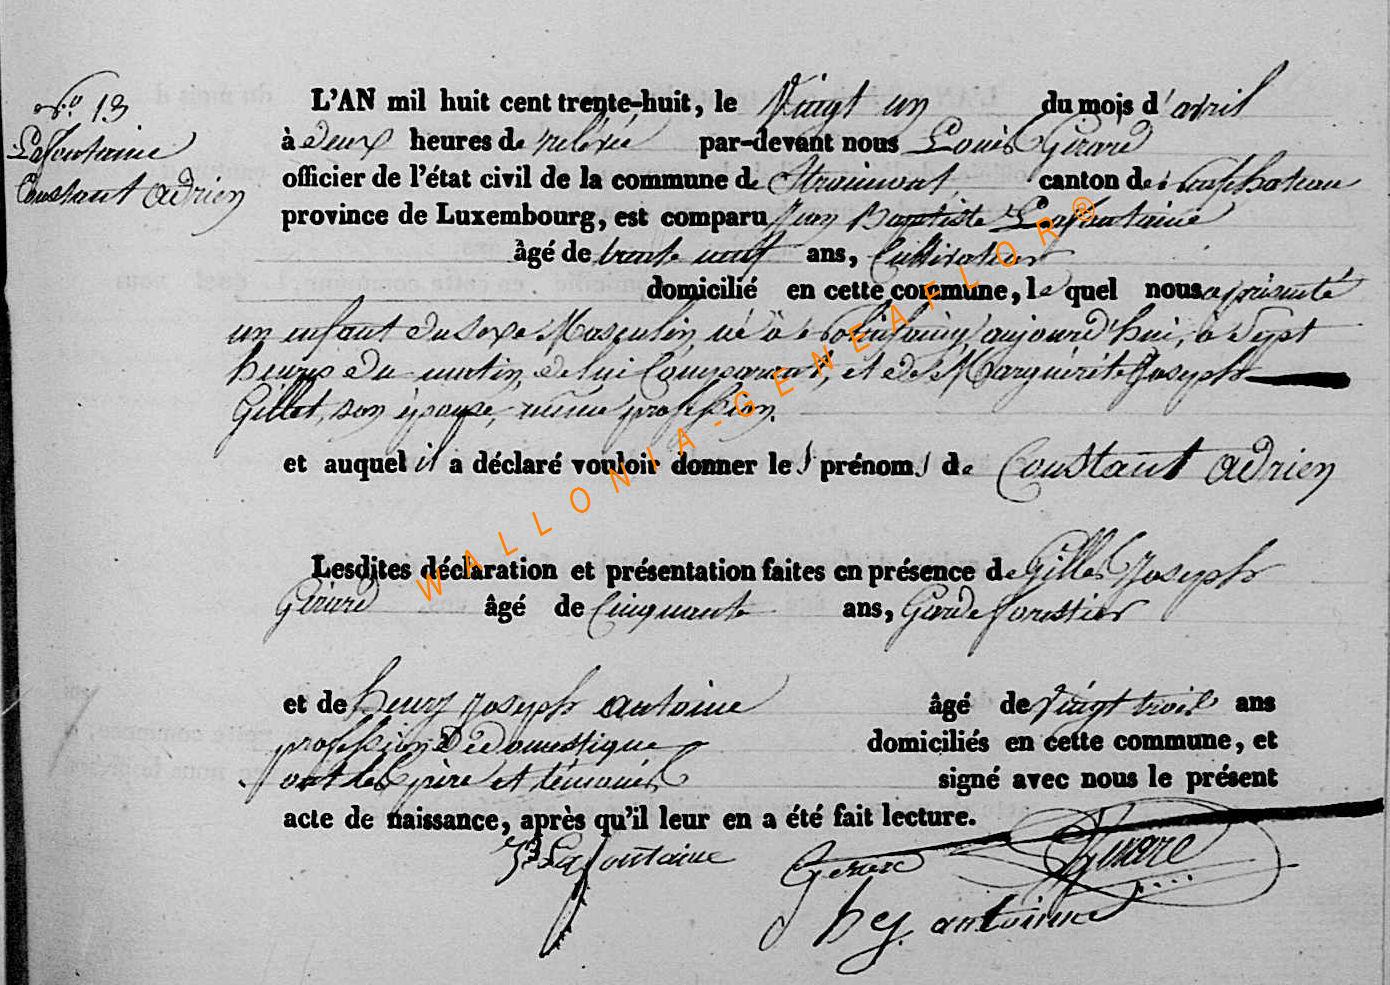 N° 13
Lafontaine
Constant Adrien
L'AN mil huit cent trente-huit, le Vingt un du mois d'avril
à deux heures de relevée par-devant nous Louis Girard
officier de l'état civil de la commune de Straimont, canton de neufchateau
province de Luxembourg, est comparu Jean Baptiste Lafontaine
âgé de trente neuf ans, Cultivateur
domicilié en cette commune, le quel nous a présenté
un enfant du sexe Masculin né à aujourd'hui, à Sept
heures du matin, de lui Comparant, et de Marguérite Joseph
Gillet, son épouse, même profession.
et auquel il a déclaré vouloir donner les prénoms de Constant Adrien
Lesdites déclaration et présentation faites en présence de Gilles Joseph
Girard âgé de Cinquante ans, Garde forestier
et de henry Joseph antoine âgé de Vingt trois ans
profession de domestique domiciliés en cette commune, et
ont les père et témoins signé avec nous le présent
acte de naissance, après qu'il leur en a été fait lecture.
JB Lafontaine
Gerard
Girard
h ej. antoinne
WALLONIA-GENEAFLOR®